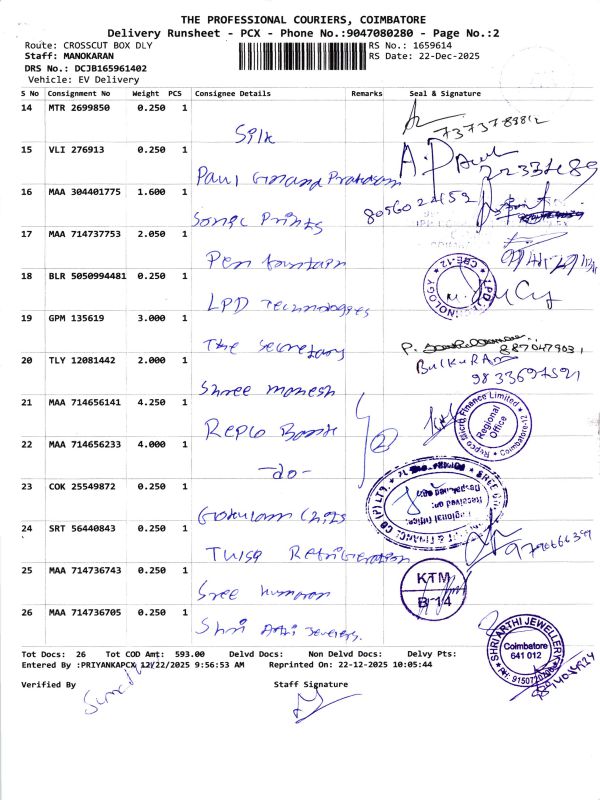 THE PROFESSIONAL COURIERS, COIMBATORE
Delivery Runsheet - PCX - Phone No.:9047080280 - Page No.:2
Route: CROSSCUT BOX DLY RS No.: 1659614
Staff: MANOKARAN RS Date: 22-Dec-2025
DRS No.: DCJB165961402
Vehicle: EV Delivery
S No Consignment No Weight PCS Consignee Details Remarks Seal & Signature
14 MTR 2699850 0.250 1
Silk
15 VLI 276913 0.250 1
A. Paul
Paul
16 MAA 304401775 1.600 1
Songc Prints
17 MAA 714737753 2.050 1
Pen fountain
18 BLR 5050994481 0.250 1
LPD Technologies
CBE-12 LPD TECHNOLOGY
19 GPM 135619 3.000 1
The Secretary
8870479031
20 TLY 12081442 2.000 1
Shree Mahesh
21 MAA 714656141 4.250 1
Repco Bank
Repco Micro Finance Limited
Regional Office
Coimbatore-12
22 MAA 714656233 4.000 1
2
-do-
23 COK 25549872 0.250 1
Gokulam Chits
Regional Office:
Received on:
Despatched on:
24 SRT 56440843 0.250 1
Tulsa Refrigeration
25 MAA 714736743 0.250 1
Sree Kumaran
KTM
B-14
26 MAA 714736705 0.250 1
Shri Arthi Jewelers.
SHRI ARTHI JEWELLERY
Coimbatore
641 012
Tot Docs: 26 Tot COD Amt: 593.00 Delvd Docs: Non Delvd Docs: Delvy Pts:
Entered By :PRIYANKAPCX 12/22/2025 9:56:53 AM Reprinted On: 22-12-2025 10:05:44
Verified By Staff Signature